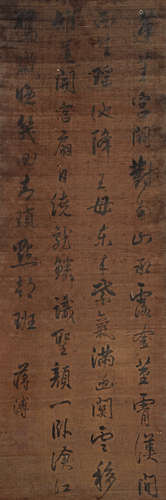 蓬萊宮闕對南山承露金莖霄漢間
西望瑤池降王母東來紫氣滿函關雲移
雉尾開宮扇日繞龍鱗識聖顏一臥滄江
驚歲晚幾回青瑣點朝班 蔣溥